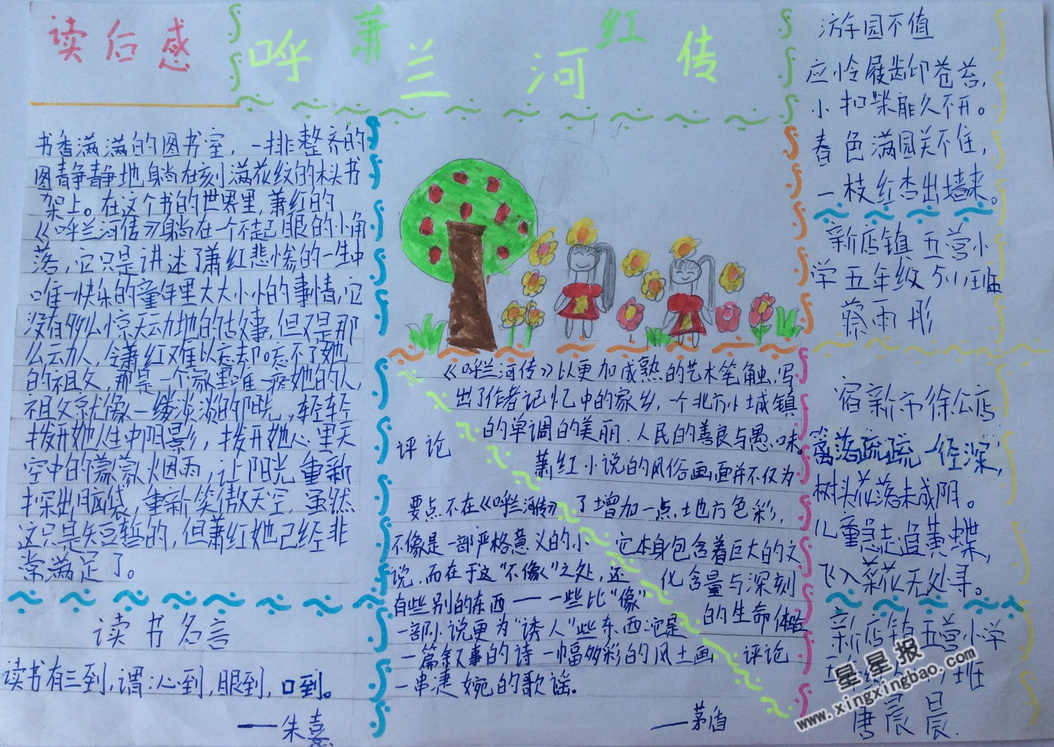 读后感
呼萧兰河红传
书香满满的图书室，一排整齐的
图静静地躺在刻满花纹的木头书
架上。在这个书的世界里，萧红的
《呼兰河传》躺在一个不起眼的小角
落，它只是讲述了萧红悲惨的一生中
唯一快乐的童年里大大小小的事情，它
没有多么惊天动地的故事，但又是那
么动人，令萧红难以忘却忘不了她
的祖父，那是一个家里唯一疼她的人
祖父就像一缕淡淡的阳光，轻轻
拨开她人生中阴影，拨开她心里天
空中的蒙蒙烟雨，让阳光重新
探出脑袋，重新笑傲天空，虽然
这只是短暂的，但萧红她已经非
常满足了。
读书名言
读书有三到，谓：心到，眼到，口到。
——朱熹
《呼兰河传》以更加成熟的艺术笔触，写
出了作者记忆中的家乡，个北方小城镇
的单调的美丽、人民的善良与愚昧
萧红小说的风俗画面并不仅为
了增加一点土地方色彩，
它本身包含着巨大的文
化含量与深刻
的生命体
评论
评论
要点不在《呼兰河传》
不像是一部严格意义的小
说，而在于这“不像”之处，还
有些别的东西——一些比“像”
一部小说更为“诱人”些东西它是
一篇叙事的诗一幅多彩的风土画
一串凄婉的歌谣。
——茅盾
游园不值
应怜屐齿印苍苔，
小扣柴能久不开。
春色满园关不住，
一枝红杏出墙来。
新店镇五营小
学五年级5小班
蔡雨彤
宿新市徐公店
篱落疏疏一径深，
树头花落未成阴。
儿童急走追黄蝶，
飞入菜花无处寻。
新店镇五营小学
班
唐晨晨
星星报
www.xingxingbao.com